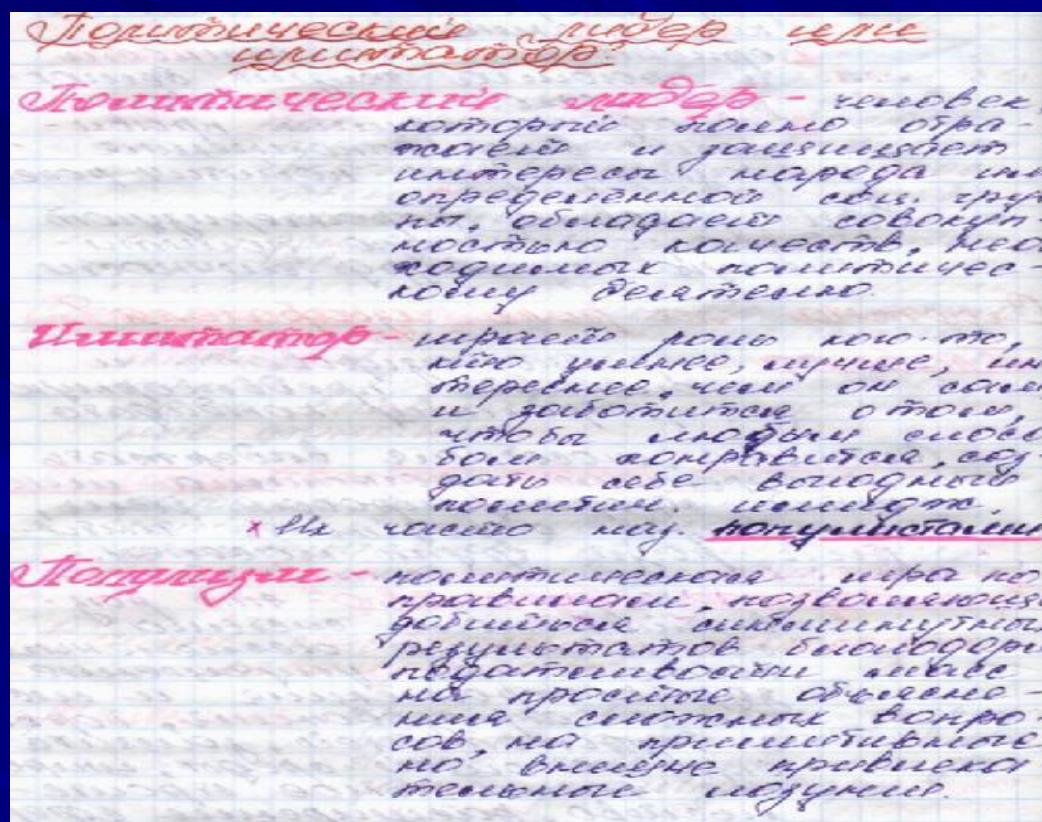 Политический лидер или
имитатор?
Политический лидер - человек,
который полно отра-
жает и защищает
интересы народа или
определённой соц. груп
пы, обладает совокуп-
ностью качеств, нео
ходимых политичес-
кому деятелю.
Имитатор - играет роль кого-то,
кто умнее, лучше, ин
тереснее, чем он сам,
и заботится о том,
чтобы любым спосо
бом понравиться, соз-
дать себе выгодный
политич. имидж.
* Их часто наз. популистами
Популизм - политическая игра по
правилам, позволяющая
добиться сиюминутных
результатов благодаря
податливости масс
на простые объясне-
ния сложных вопро-
сов, на примитивные
но внешне привлека
тельные лозунги.